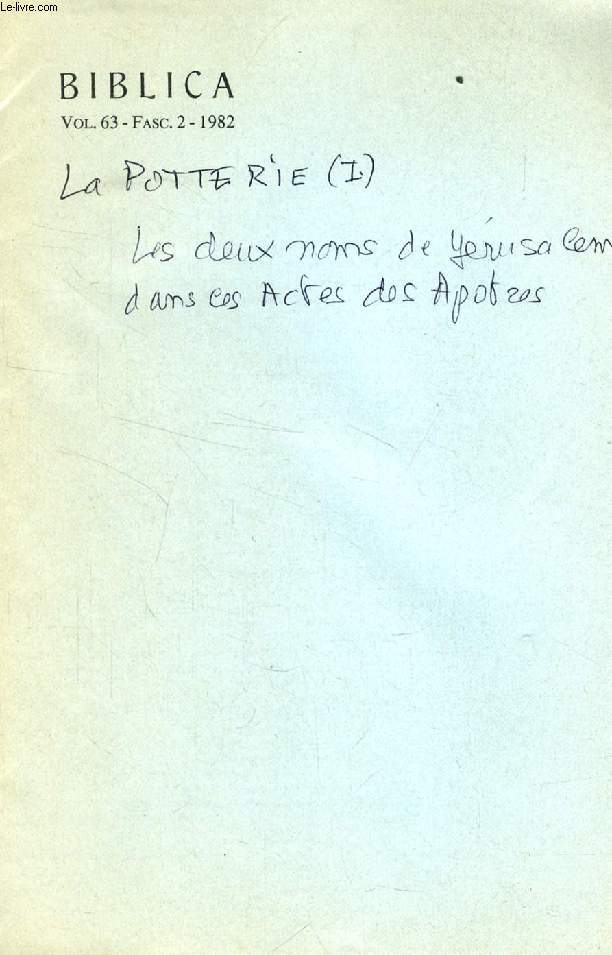 Le-livre.com
BIBLICA
VOL. 63 - FASC. 2 - 1982
La POTTERIE (I.)
Les deux noms de Jérusalem
dans les Actes des Apotres